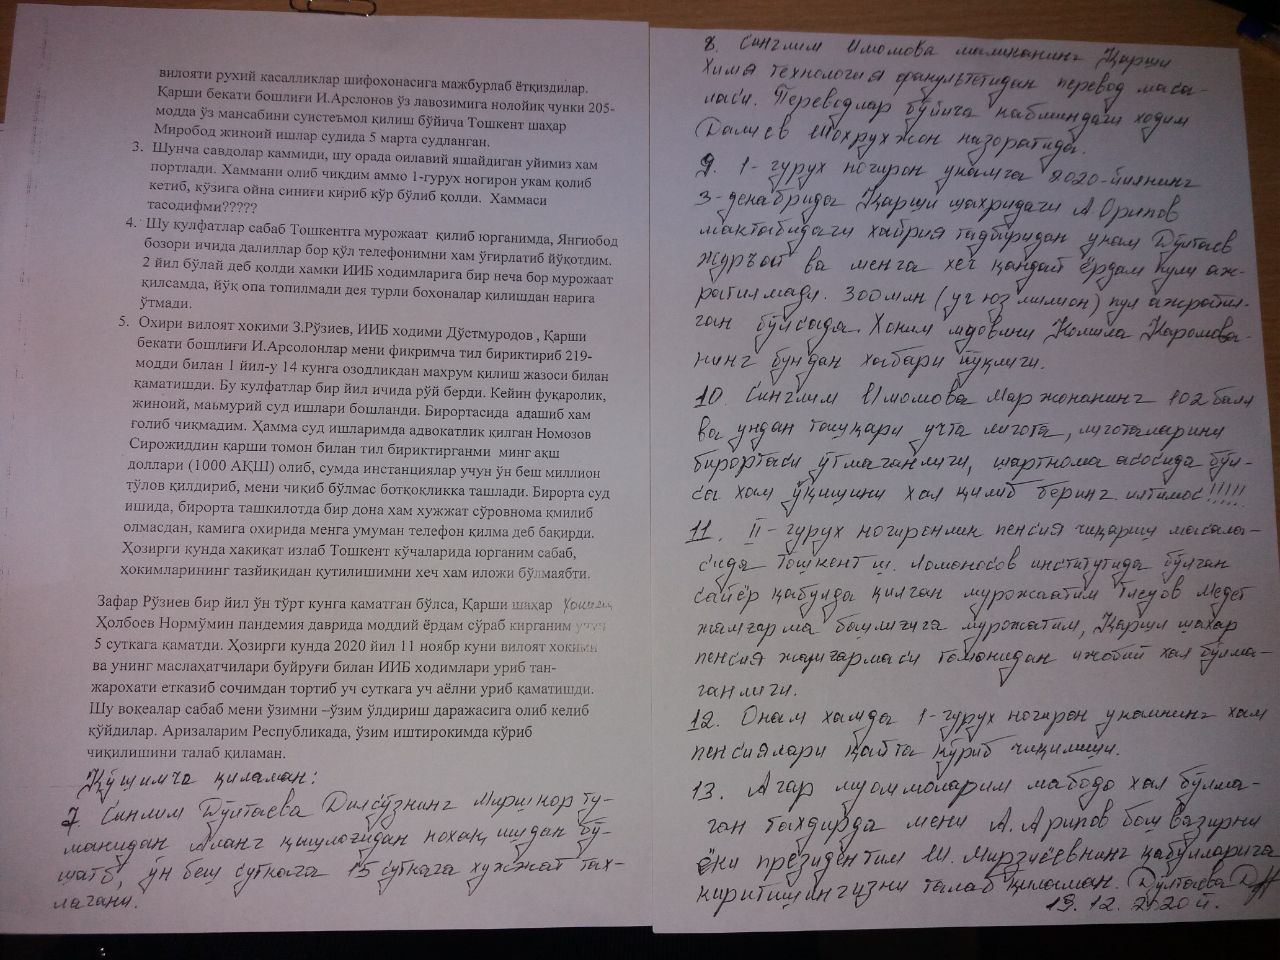 вилояти рухий касалликлар шифохонасига мажбурлаб ётқиздилар.
Қарши бекати бошлиғи И.Арслонов ўз лавозимига нолойиқ чунки 205-
модда ўз мансабини суистеъмол қилиш бўйича Тошкент шаҳар
Миробод жиноий ишлар судида 5 марта судланган.
3. Шунча савдолар каммиди, шу орада оилавий яшайдиган уйимиз хам
портлади. Хаммани олиб чиқдим аммо 1-гурух ногирон укам қолиб
кетиб, кўзига ойна синиғи кириб кўр бўлиб қолди. Хаммаси
тасодифми?????
4. Шу кулфатлар сабаб Тошкентга мурожаат қилиб юрганимда, Янгиобод
бозори ичида далиллар бор қўл телефонимни хам ўғирлатиб йўқотдим.
2 йил бўлай деб қолди хамки ИИБ ходимларига бир неча бор мурожаат
қилсамда, йўқ опа топилмади дея турли бохоналар қилишдан нарига
ўтмади.
5. Охири вилоят хокими З.Рўзиев, ИИБ ходими Дўстмуродов , Қарши
бекати бошлиғи И.Арсолонлар мени фикримча тил бириктириб 219-
модди билан 1 йил-у 14 кунга озодликдан махрум қилиш жазоси билан
қаматишди. Бу кулфатлар бир йил ичида рўй берди. Кейин фуқаролик,
жиноий, маьмурий суд ишлари бошланди. Бирортасида адашиб хам
ғолиб чиқмадим. Ҳамма суд ишларимда адвокатлик қилган Номозов
Сирожиддин қарши томон билан тил бириктирганми минг ақш
доллари (1000 АҚШ) олиб, сумда инстанциялар учун ўн беш миллион
тўлов қилдириб, мени чиқиб бўлмас ботқоқликка ташлади. Бирорта суд
ишида, бирорта ташкилотда бир дона хам хужжат сўровнома қмилиб
олмасдан, камига охирида менга умуман телефон қилма деб бақирди.
Ҳозирги кунда хакиқат излаб Тошкент кўчаларида юрганим сабаб,
ҳокимларининг тазйиқидан қутилишимни хеч хам иложи бўлмаябти.
Зафар Рўзиев бир йил ўн тўрт кунга қаматган бўлса, Қарши шаҳар хокими
Ҳолбоев Нормўмин пандемия даврида моддий ёрдам сўраб кирганим учун
5 суткага қаматди. Ҳозирги кунда 2020 йил 11 ноябр куни вилоят хокими
ва унинг маслаҳатчилари буйруғи билан ИИБ ходимлари уриб тан-
жарохати етказиб сочимдан тортиб уч суткага уч аёлни уриб қаматишди.
Шу воқеалар сабаб мени ўзимни –ўзим ўлдириш даражасига олиб келиб
қўйдилар. Аризаларим Республикада, ўзим иштирокимда кўриб
чиқилишини талаб қиламан.
Қўшимча қиламан:
7. Синлим Дўлтаева Дилсўзнинг Миришкор ту-
манидан Аланг қишлоғидан ноҳақ ишдан бў-
шатиб, ўн беш суткага 15 суткага хужжат тах-
лагани.
8. Синглим Имомова маликанинг Қарши
Химя технология факультетидан перевод маса-
ласи. Переводлар бўйича кабминдаги ходим
Далиев Шохрухжон назоратида.
9. 1-гурух ногирон укамга 2020-йилнинг
3-декабрида Қарши шахридаги А Орипов
мактабидаги хайрия тадбиридан укам Дўлтаев
Журъат ва менга хеч қандай ёрдам пули аж-
ратилмади. 300 млн (уч юз милион) пул ажратил-
ган бўлсада. Хоким муовини Комила Каромова-
нинг бундан хабари йўқлиги.
10. Синглим Имомова Маржонанинг 102 балл
ва ундан ташқари учта лигота, лиготаларини
бирортаси ўтмаганлиги, шартнома асосида бўл-
са хам ўқишини хал қилиб беринг. илтимос!!!!!
11. II-гурух ногиронлик пенсия чиқариш масала-
сида Тошкент ш. Ломоносов институтида бўлган
сайёр қабулда қилган мурожаатим Тлеуов Медет
жамгарма бошлиғига мурожатим, Қарши шахар
пенсия жамгармаси томонидан ижобий хал бўлма-
ганлиги.
12. Онам хамда 1-гурух ногирон укамнинг хам
пенсиялари қайта кўриб чиқилиши.
13. Агар муоммоларим мабодо хал бўлма-
ган тахдирда мени А. Арипов бош вазирни
ёки президентим Ш. Мирзиёевнинг қабулларига
киритишингизни талаб қиламан. Дўлтаева Д
19. 12. 2020 й.